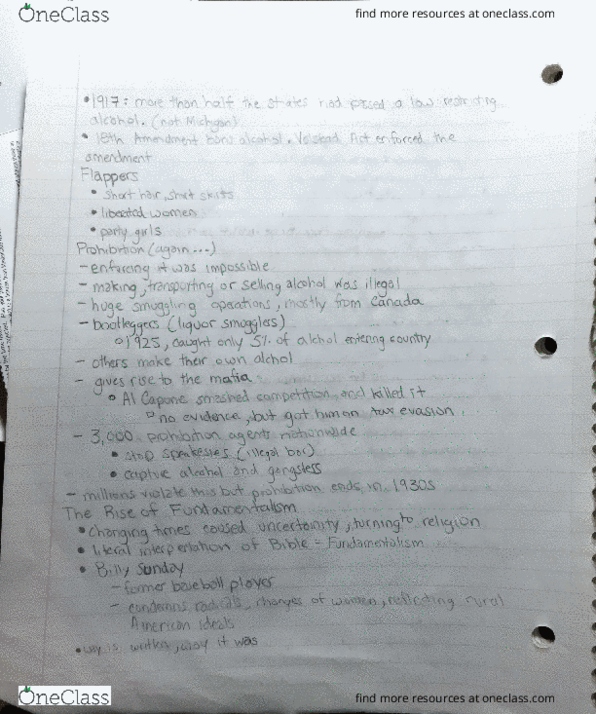 OneClass
find more resources at oneclass.com
•1917: more than half the states had passed a law restricting
alcohol. (not Michigan)
• 18th Amendment bans alcohol. Volstead Act enforced the
amendment
Flappers
• short hair, short skirts
• liberated women
• party girls
Prohibition (again...)
- enforcing it was impossible
- making, transporting or selling alcohol was illegal
- huge smuggling operations, mostly from Canada
- bootleggers (liquor smugglers)
o 1925, caught only 5% of alchol entering country
- others make their own alchol
- gives rise to the mafia
o Al Capone smashed competition, and killed it
no evidence, but got him on tax evasion.
- 3,000 prohibition agents nationwide
• stop speakesies (illegal bar)
• captive alcohol and gangsters
- millions violate this but prohibition ends in 1930s
The Rise of Fundamentalism
• changing times caused uncertainity, turning to religion
• literal interpertation of Bible = Fundamentalism
• Billy Sunday
- former baseball player
- condemns radicals, changes of women, reflecting rural
American ideals
• way is written, way it was
OneClass
find more resources at oneclass.com